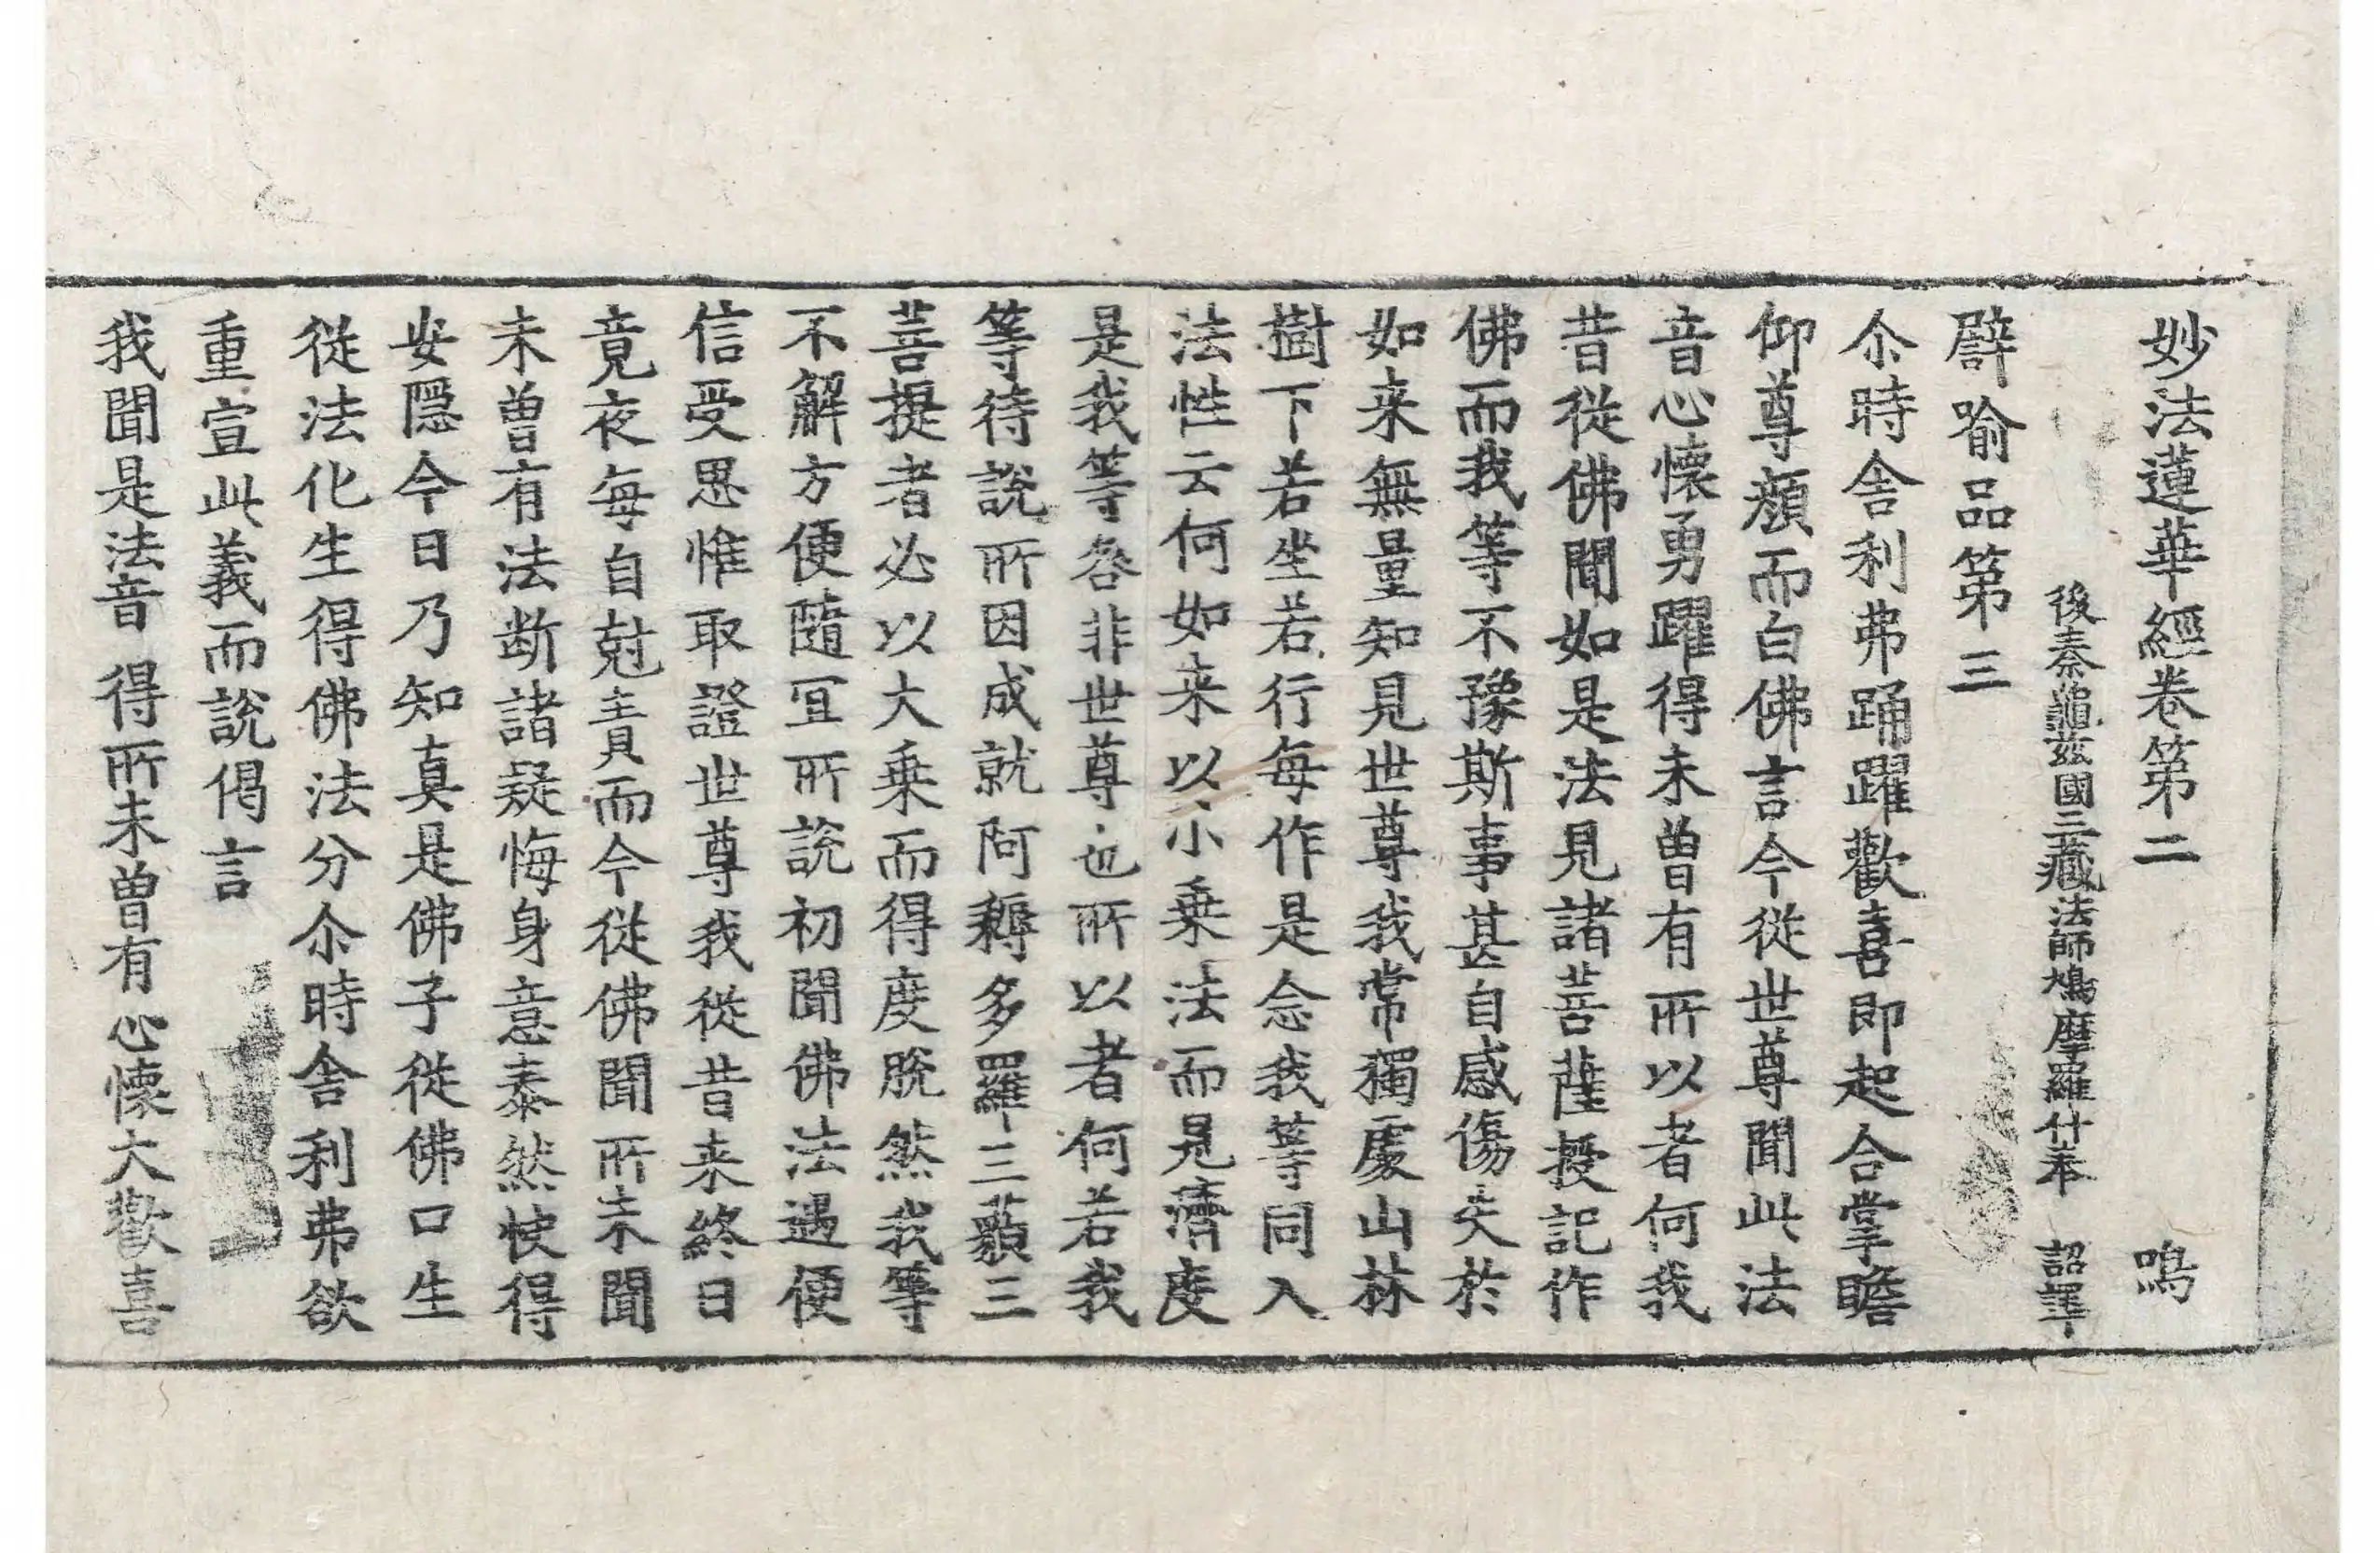 妙法蓮華經卷第二 鳴
後秦龜茲國三藏法師鳩摩羅什奉 詔譯
譬喻品第三
尒時舍利弗踊躍歡喜即起合掌瞻
仰尊顔而白佛言今從世尊聞此法
音心懷勇躍得未曾有所以者何我
昔從佛聞如是法見諸菩薩授記作
佛而我等不豫斯事甚自感傷失於
如来無量知見世尊我常獨處山林
樹下若坐若行每作是念我等同入
法性云何如来以小乗法而見濟度
是我等咎非世尊也所以者何若我
等待說所因成就阿耨多羅三藐三
菩提者必以大乗而得度脫然我等
不解方便隨冝所說初聞佛法遇便
信受思惟取證世尊我從昔来終日
竟夜每自尅責而今從佛聞所未聞
未曾有法断諸疑悔身意泰然快得
安隱今日乃知真是佛子從佛口生
從法化生得佛法分尒時舍利弗欲
重宣此義而說偈言
我聞是法音 得所未曾有 心懷大歡喜